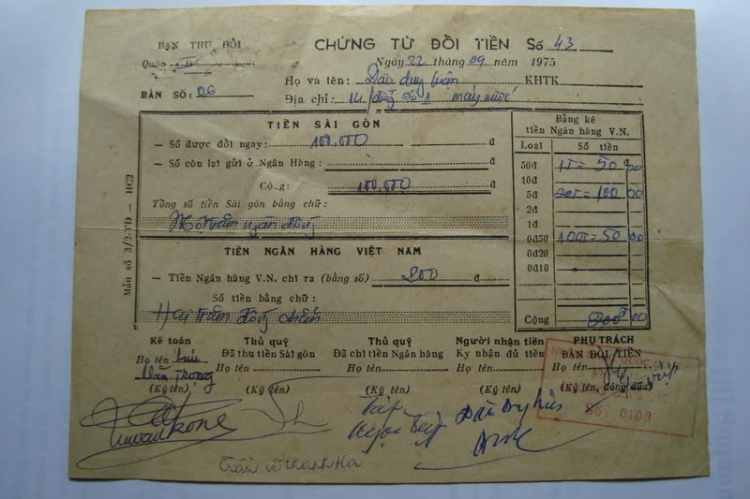 BAN THU ĐỔI
CHỨNG TỪ ĐỔI TIỀN Số 43
Quận
Ngày 22 tháng 09 năm 1975
Họ và tên: Đào duy KHTK
BÀN SỐ: 06
Địa chỉ: máy nước
TIỀN SÀI GÒN
— Số được đổi ngay: 100.000 đ
— Số còn lại gửi ở Ngân Hàng: đ
Cộng: 100.000 đ
Tổng số tiền Sài gòn bằng chữ:
Một trăm ngàn đồng
TIỀN NGÂN HÀNG VIỆT NAM
— Tiền Ngân hàng V.N. chi ra (bằng số) 200 đ
Số tiền bằng chữ:
Hai trăm đồng chẵn
Bảng kê
tiền Ngân hàng V.N.
Loại Số tiền
50đ 1T = 50 00
10đ
5đ 20T = 100 00
2đ
1đ
0đ50 100T = 50 00
0đ20
0đ10
Cộng 200đ 00
Mẫu số 3/2-TĐ — HC2
Kế toán
Họ tên
Văn Trong
(Ký tên)
Thủ quỹ
Đã thu tiền Sài gòn
Họ tên
(Ký tên)
Thủ quỹ
Đã chi tiền Ngân hàng
Họ tên
(Ký tên)
Người nhận tiền
Ký nhận đủ tiền
Họ tên
(Ký tên)
PHỤ TRÁCH
BÀN ĐỔI TIỀN
Họ tên
(Ký tên, đóng dấu)
SỐ: 0109
Trần võ thanh Ha